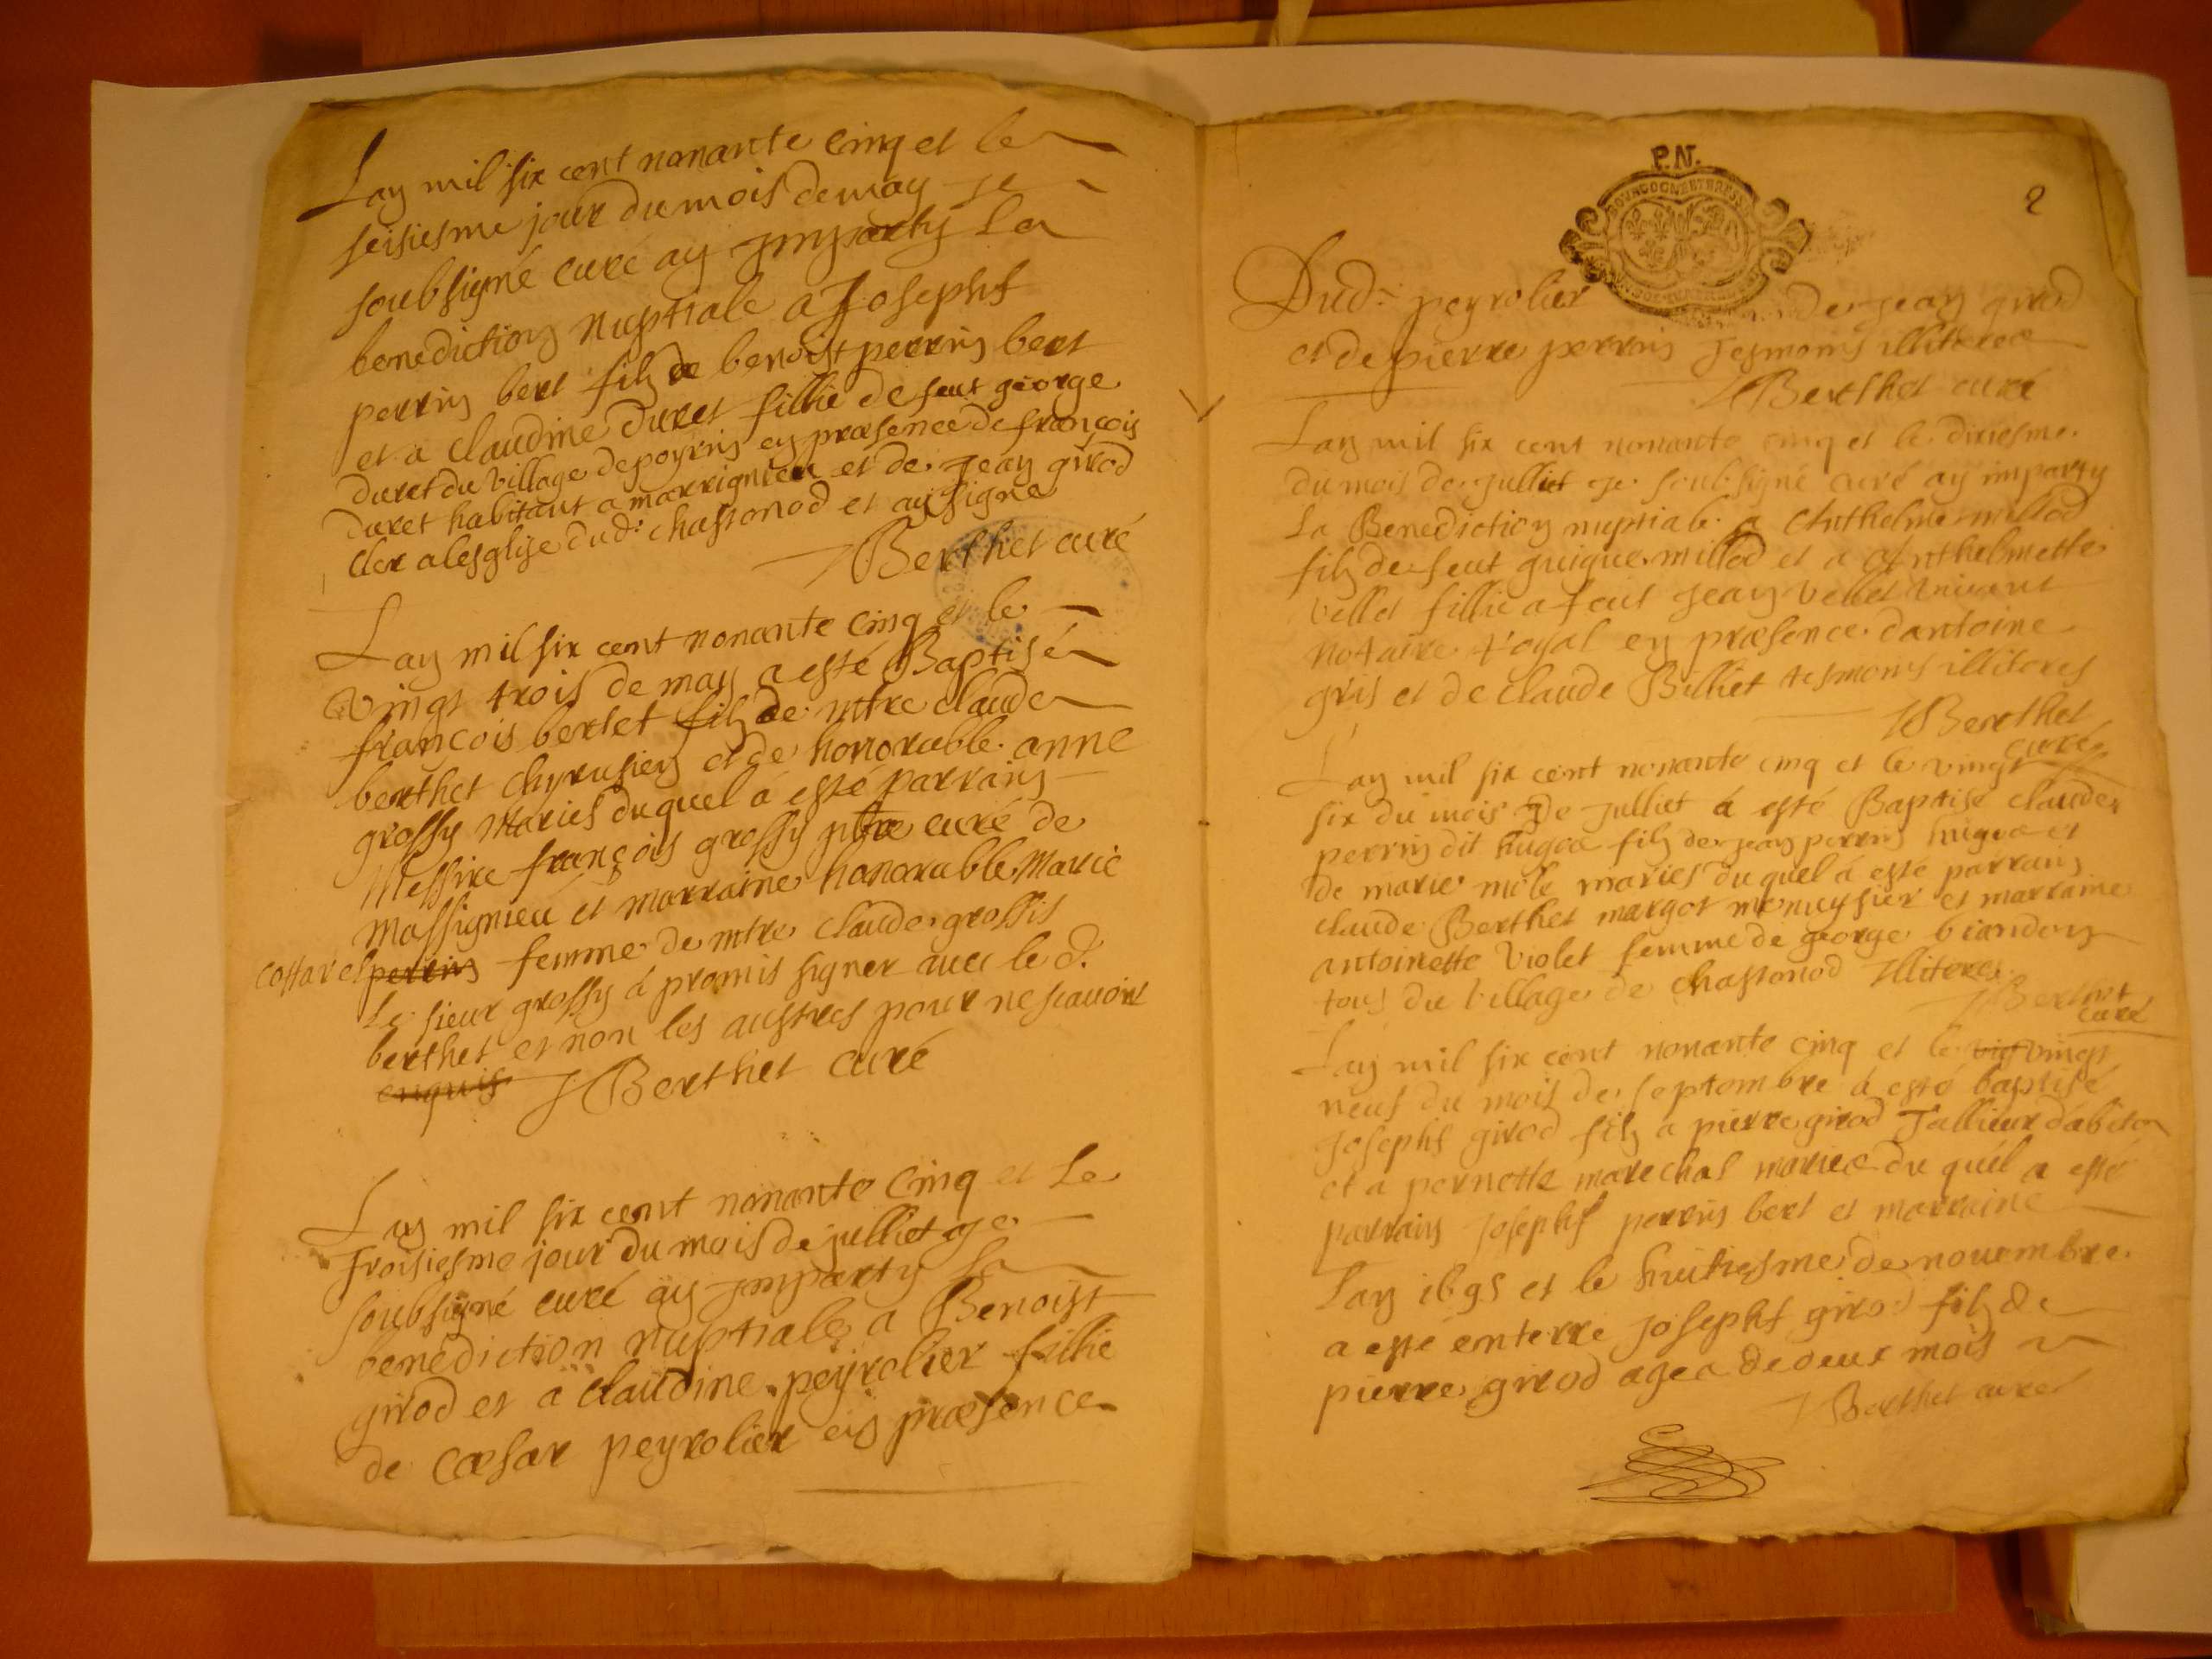 Lan mil six cent nonante cinq et le
seisiesme jour du mois de may je
soubsigné curé ay imparty La
benediction Nuptiale a Josephs
perrin bert filz de benoist perrin bert
et a claudine duret fillie de feut george
duret du village de poyrin en præsence de françois
duret habitant a marrignieu et de jean girod
cler a lesglise dud: chastonod et ay signe
Berthet curé
Lan mil six cent nonante cinq et le
vingt trois de may a esté Baptisé
françois bertet filz de mtre claude
berthet chyrusien et de honorable anne
grossy Mariés duquel á esté parrain
Messire françois grossy ptre curé de
massignieu et marraine honorable Marie
costarel perrin femme de mtre claude grossis
Le sieur grossy á promis signer avec le d.
berthet et non les austres pour ne scavoir
enquis JBerthet curé
Lan mil six cent nonante Cinq et Le
Troisiesme jour du mois de julliet je
soubsigné curé ay imparty La
benediction nuptiale a Benoist
girod et a claudine peyrolier fillie
de Cæsar peyrolier en præsence
P.N.
2
Dud: peyrolier de jean girod
et de pierre perrin Tesmoins illiteres
JBerthet curé
Lan mil six cent nonante cinq et le dixiesme
du mois de julliet je soubsigné curé ay imparty
La Benediction nuptiale a Anthelme millod
filz de feut guigue millod et a Anthelmette
vellet fillie a feut jean vellet vivant
notaire royal en præsence dantoine
gris et de claude Billiet tesmoins illiteres
JBerthet
curé
Lan mil six cent nonante cinq et le vingt
six du mois de julliet á esté Baptisé claude
perrin dit hugoe filz de jean perrin hugoe et
de marie mole mariés duquel á esté parrain
claude Berthet margot menuysier et marraine
antoinette violet femme de george biandon
tous du village de chastonod Illiteres
JBerthet
curé
Lan mil six cent nonante cinq et le vig vingt
neuf du mois de septembre á esté baptisé
Josephs girod filz a pierre girod Tallieur dábitz
et a pernette marechal mariee du quél a esté
parrain Josephs perrin bert et marraine
Lan 1695 et le huitiesme de nouembre
a esté enterre Josephs girod filz de
pierre girod agea de deux mois
JBerthet curé